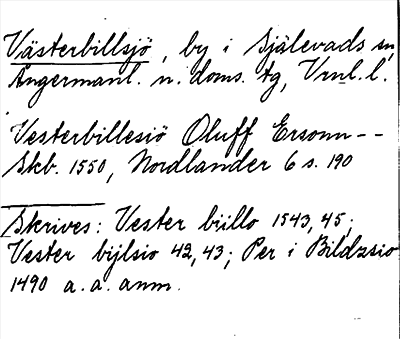 Västerbillsjö, by i Själevads sn,
Ångermanl. n. doms. tg, Vrnl. l.
Vesterbillesiö Oluff Ersonn--
Skb. 1550, Nordlander 6 s. 190
Skrives: Vester biillo 1543, 45;
Vester bijlsio 42, 43; Per i Bildzsio
1490 a. a. anm.